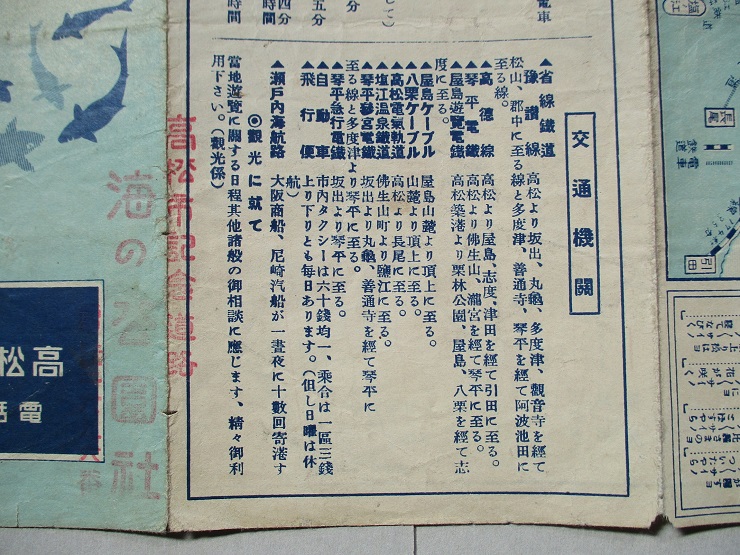 交通機關
▲省線鐵道
豫讚線　高松より坂出、丸龜、多度津、觀音寺を經て
松山、郡中に至る線と多度津、善通寺、琴平を經て阿波池田に
至る線。
▲高德線　高松より屋島、志度、津田を經て引田に至る。
▲琴平電鐵　高松より佛生山、瀧宮を經て琴平に至る。
▲屋島遊覽電鐵　高松築港より栗林公園、屋島、八栗を經て志
度に至る。
▲屋島ケーブル　屋島山麓より頂上に至る。
▲八栗ケーブル　山麓より頂上に至る。
▲高松電氣軌道　高松より長尾に至る。
▲塩江温泉鐵道　佛生山町より鹽江に至る。
▲琴平參宮電鐵　坂出より丸龜、善通寺を經て琴平に
至る線と多度津より琴平に至る。
▲琴平急行電鐵　坂出より琴平に至る。
▲自動車　市內タクシーは六十錢均一、乘合は一區三錢
▲飛行便　上り下りとも每日あります。（但し日曜は休
航）
▲瀨戶內海航路　大阪商船、尼崎汽船が一晝夜に十數回寄港す
◎觀光に就て
當地遊覽に關する日程其他諸般の御相談に應じます、精々御利
用下さい。（觀光係）
電車
四分
五分
時間
時間
高松市記念道路
海の公園社
高松
電話
長尾
引田
電車
鉄道